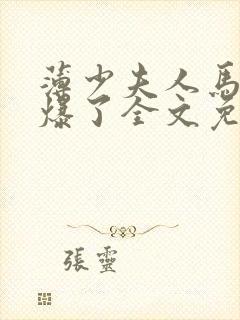 薄少夫人馬
爆了全文免
張靈